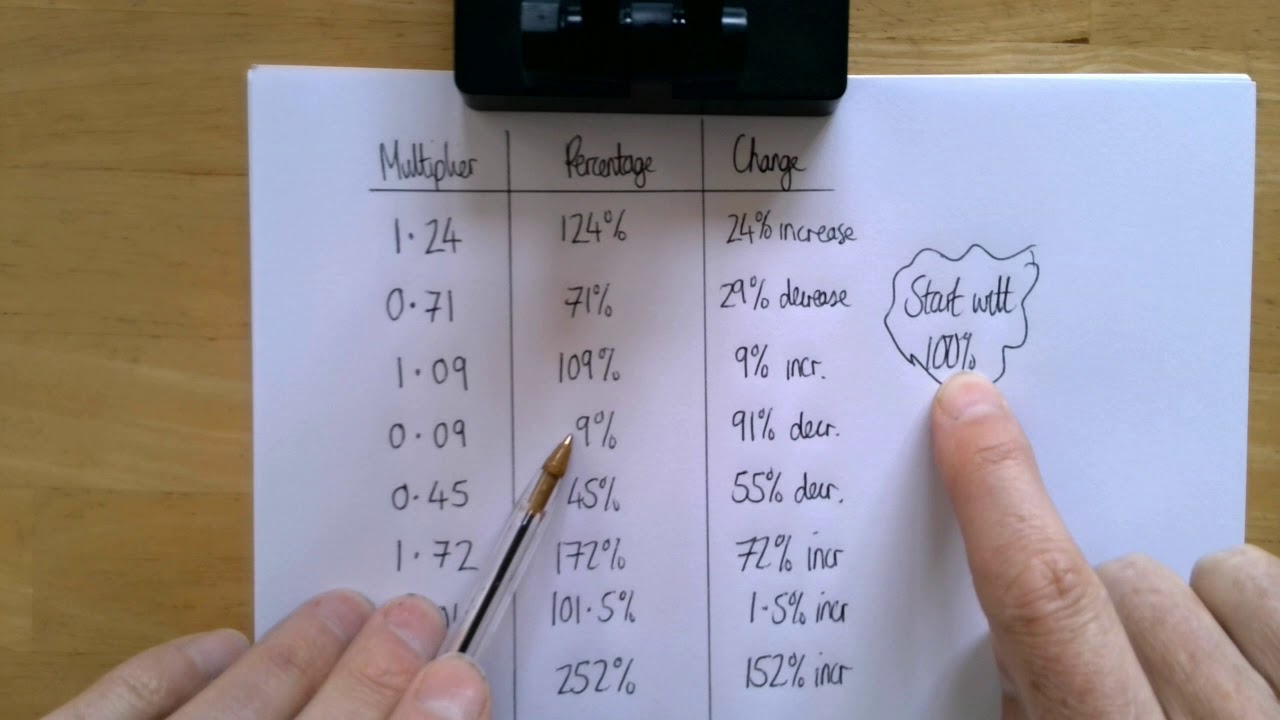 Multiplier Percentage Change
1.24 124% 24% increase
0.71 71% 29% decrease
Start with
100%
1.09 109% 9% incr.
0.09 9% 91% decr.
0.45 45% 55% decr.
1.72 172% 72% incr
101.5% 1.5% incr
252% 152% incr